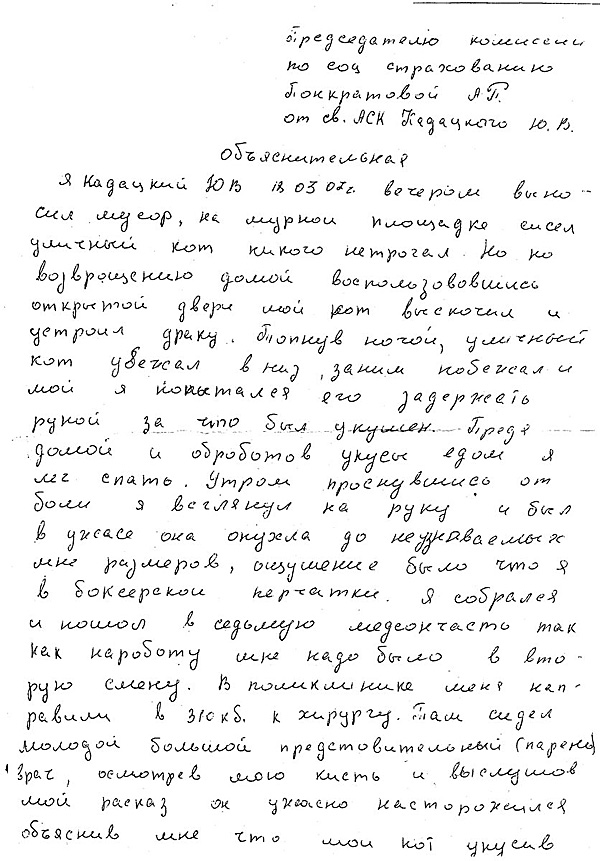 Председателю комиссии
по соц страхованию
Понкратовой А.П.
от св. АСК Кадацкого Ю.В.
Объяснительная
Я Кадацкий Ю В 18 03 07г. вечером выно-
сил мусор, на мурной площадке сисел
уличный кот никого нетрогал. Но по
возврощению домой воспользововшись
открытой двери мой кот выскочил и
устроил драку. Топнув ногой, уличный
кот убежал в низ, заним побежал и
мой я попытался его задержать
рукой за что был укушен. Предя
домой и оброботов укусы едом я
лег спать. Утром проснувшись от
боли я взглянул на руку и был
в ужасе она опухла до неузноваемых
мне размеров, ощушение было что я
в боксерской перчатки. Я собрался
и пошол в седьмую медсончасть так
как нароботу мне надо было в вто-
рую смену. В поликлинике меня нап-
равили в 310 кб. к хирургу. Там сидел
молодой большой предстовительный (парень)
врач, осмотрев мою кисть и выслушов
мой расказ он ужасно насторожился
объяснив мне что мои кот укусив